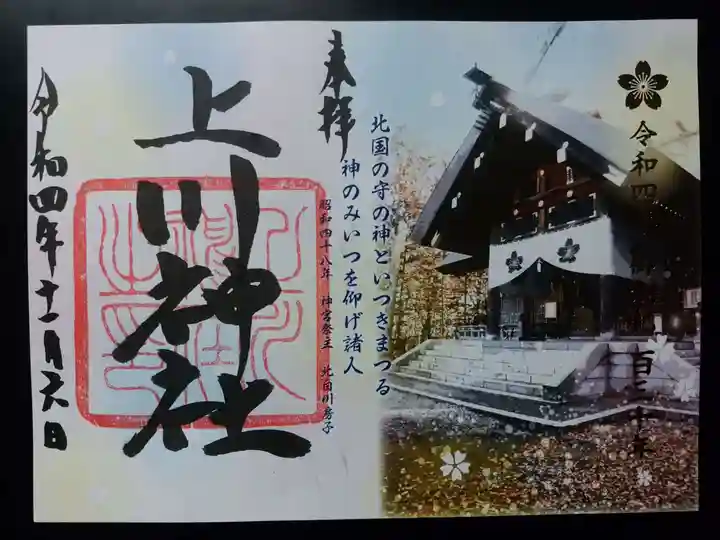 令和四年
百三十年
奉拝
北国の守の神といつきまつる
神のみいつを仰げ諸人
昭和四十八年 神宮祭主 北白川房子
上川神社
令和四年十一月六日